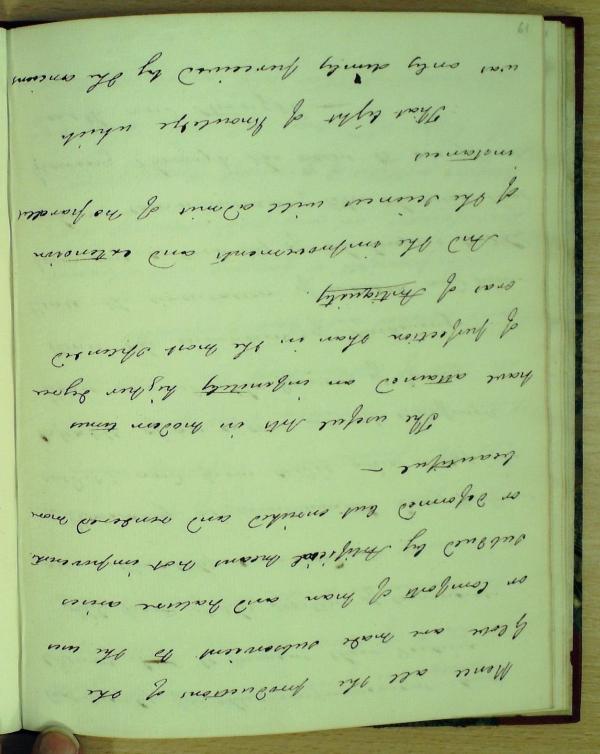 Hence all the productions of the
globe are made subservient to the uses
or comforts of man and nature arises
subdued by Artificial means not impoverished
or deformed but enriched and rendered more
beautiful –
The useful Arts in modern times
have attained an infinitely higher degree
of perfection than in the most splendid
eras of Antiquity.
And the improvements and extension
of the sciences will admit of no parallel
instances
That light of knowledge which
was only dimly perceived by the ancients
61